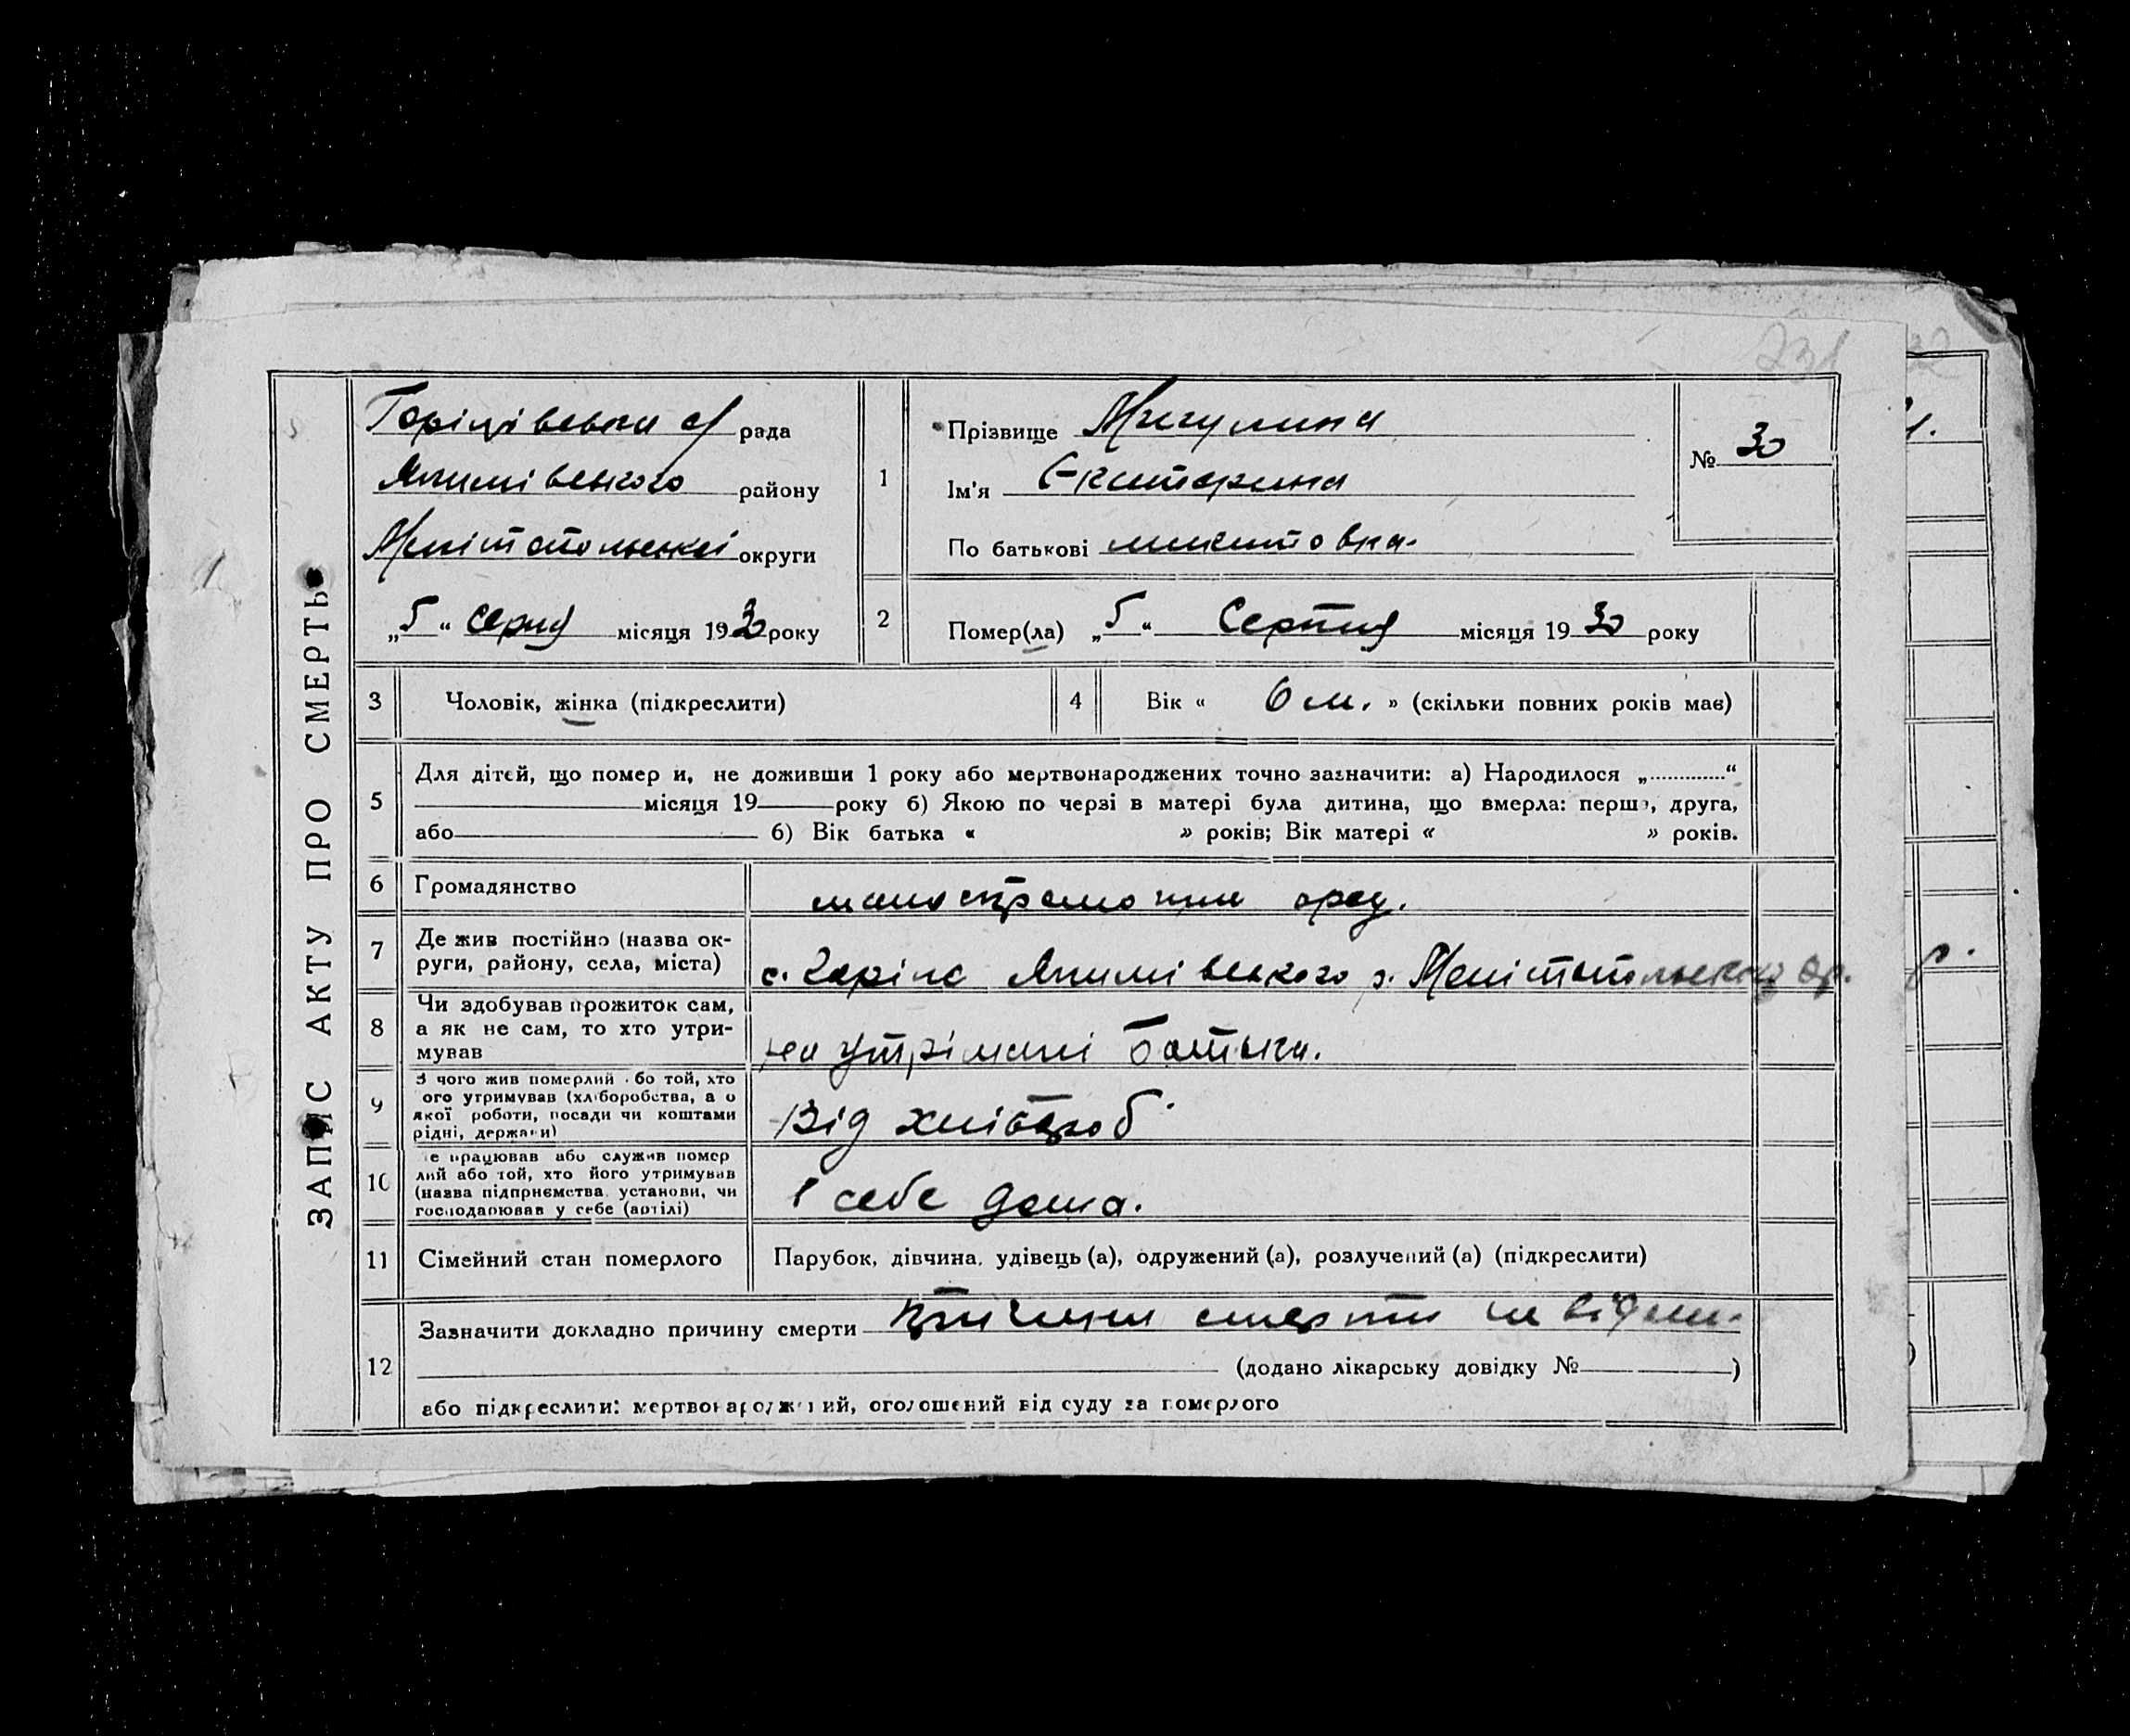 231
ЗАПИС АКТУ ПРО СМЕРТЬ
Горілівська с/рада
Якимівського району
Мелітопольської округи
„5“ серпня місяця 1930 року
1
Прізвище Мигулина
Ім'я Єкатерина
По батькові микитовна.
№ 30
2
Помер(ла) „5“ Серпня місяця 1930 року
3
Чоловік, жінка (підкреслити)
4
Вік « 6 м. » (скільки повних років має)
5
Для дітей, що помер и, не доживши 1 року або мертвонароджених точно зазначити: а) Народилося „.............“
місяця 19 року б) Якою по черзі в матері була дитина, що вмерла: перша, друга,
або б) Вік батька « » років; Вік матері « » років.
6
Громадянство
7
Де жив постійно (назва ок-
руги, району, села, міста)
с. Якимівського р. Мелітопольської окр.
8
Чи здобував прожиток сам,
а як не сам, то хто утри-
мував
на утрімані батька.
9
З чого жив померлий або той, хто
його утримував (хліборобства, а о
якої роботи, посади чи коштами
рідні, держави)
Від хлібороб
10
Де працював або служив помер
лий або той, хто його утримував
(назва підприємства, установи, чи
господарював у себе (артілі)
у себе дома.
11
Сімейний стан померлого
Парубок, дівчина, удівець (а), одружений (а), розлучений (а) (підкреслити)
12
Зазначити докладно причину смерти причини смерти не відом.
(додано лікарську довідку № )
або підкреслити: мертвонароджений, оголошений від суду за померлого